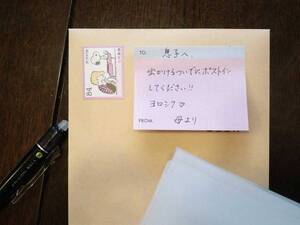 TO:
息子へ、
出かけるついでにポストイン
してください!!
ヨロシク
FROM:
母より
84